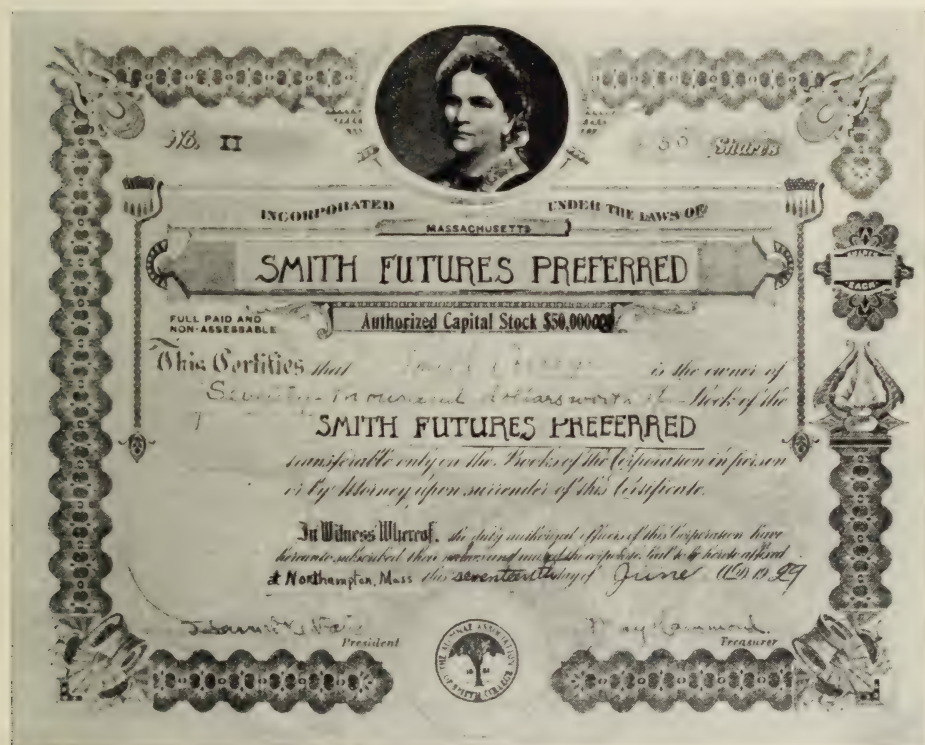 No. II
Shares
INCORPORATED UNDER THE LAWS OF
MASSACHUSETTS
SMITH FUTURES PREFERRED
SHARES
EACH
FULL PAID AND
NON-ASSESSABLE
Authorized Capital Stock $50,000
This Certifies that is the owner of
dollars worth Stock of the
SMITH FUTURES PREFERRED
transferable only on the Books of the Corporation in person
or by Attorney upon surrender of this Certificate.
In Witness Whereof, the duly authorized officers of this Corporation have
hereunto subscribed their names and caused the corporate Seal to be hereto affixed
at Northampton, Mass this seventeenth day of June A.D. 1929
President
Treasurer
THE ALUMNAE ASSOCIATION
OF SMITH COLLEGE